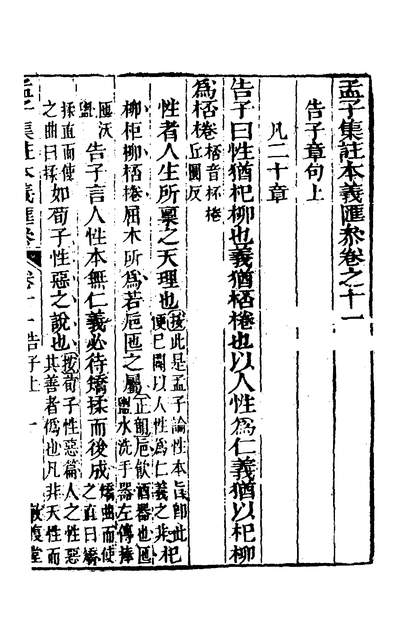 孟子集註本義匯參卷之十一
告子章句上
凡二十章
告子曰性猶杞柳也義猶桮棬也以人性為仁義猶以杞柳
為桮棬桮音杯棬丘圜反
性者人生所稟之天理也按此是孟子論性本旨即此便已開以人性為仁義之非杞
柳柜柳桮棬屈木所為若卮匜之屬正韻卮飲酒器也匜盥水洗手器左傳捧
匜沃盥告子言人性本無仁義必待矯揉而後成矯曲而使之直曰矯
揉直而使之曲曰揉如荀子性惡之說也按荀子性惡篇人之性惡其善者偽也凡非天性而
孟子集註本義匯參 卷十一告子上 一 敦復堂